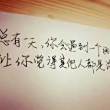 总有一天，你会遇到一个
让你觉得其他人都是